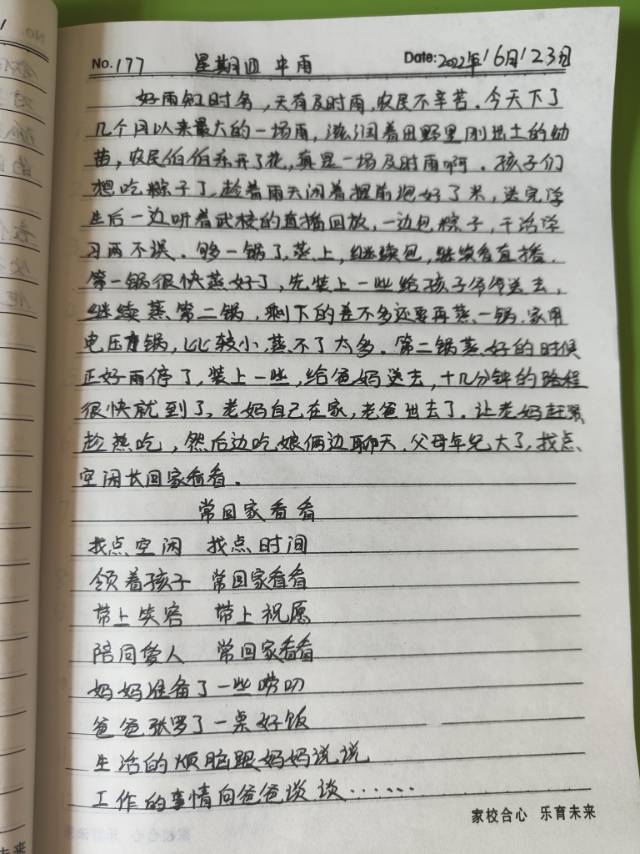 No. 177 星期四 中雨 Date: 2022年6月23日
好雨知时多,天有及时雨,农民不辛苦.今天下了
几个月以来最大的一场雨,滋润着田野里刚出土的幼
苗,农民伯伯乐开了花,真是一场及时雨啊.孩子们
想吃粽子了,趁着雨天闲着提前泡好了米,送完学
生后一边听着武校的直播回放,一边包粽子,干活学
习两不误.够一锅了,蒸上,继续包,继续看直播.
第一锅很快蒸好了,先装上一些给孩子爷爷送去,
继续蒸第二锅,剩下的差不多还要再蒸一锅.家用
电压力锅,比较小,蒸不了太多.第二锅蒸好的时候
正好雨停了,装上一些,给爸妈送去,十几分钟的路程
很快就到了,老妈自己在家,老爸出去了.让老妈赶紧
趁热吃,然后边吃娘俩边聊天.父母年纪大了,找点
空闲长回家看看.
常回家看看
找点空闲 找点时间
领着孩子 常回家看看
带上笑容 带上祝愿
陪同爱人 常回家看看
妈妈准备了一些唠叨
爸爸张罗了一桌好饭
生活的烦恼跟妈妈说说
工作的事情向爸爸谈谈……
家校合心 乐育未来